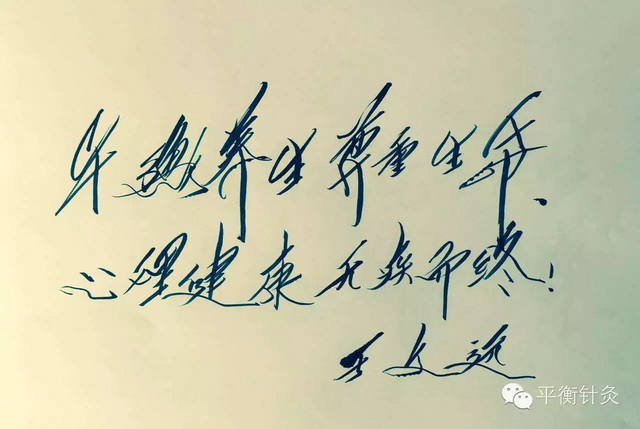 养生尊重生命、
心理健康无疾而终!
王文远
平衡针灸